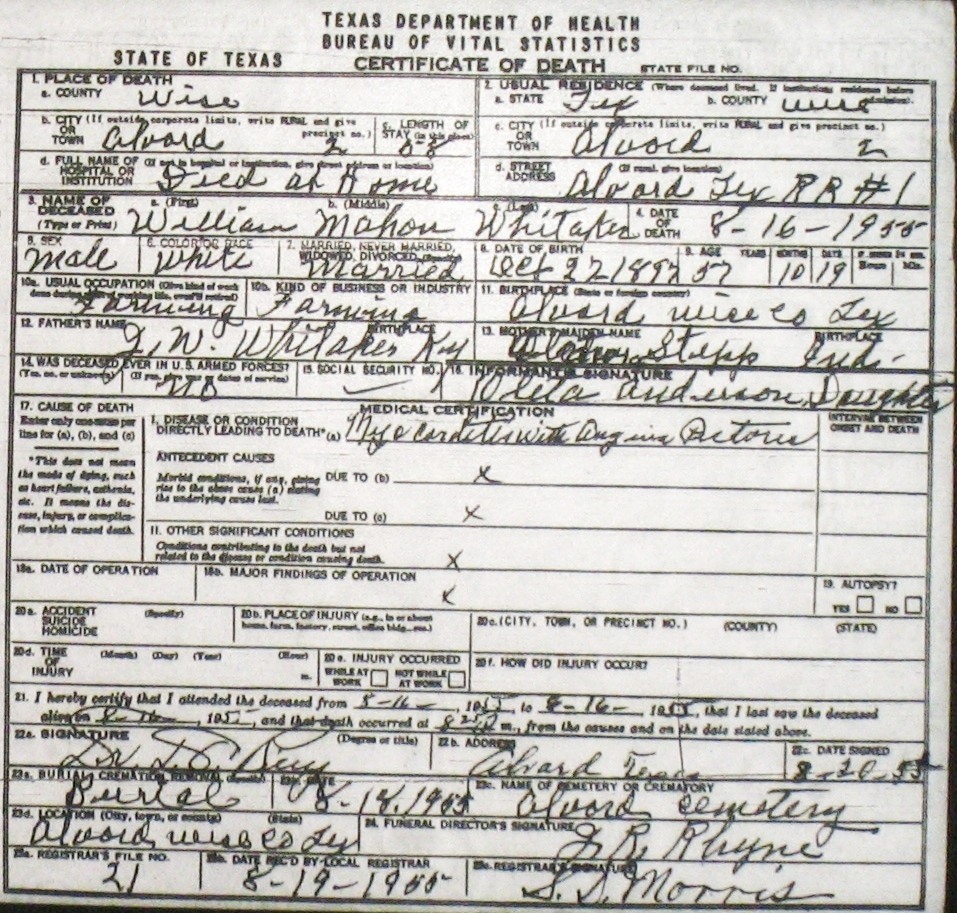 TEXAS DEPARTMENT OF HEALTH
BUREAU OF VITAL STATISTICS
STATE OF TEXAS CERTIFICATE OF DEATH STATE FILE NO.
1. PLACE OF DEATH
a. COUNTY Wise
2. USUAL RESIDENCE (Where deceased lived. If institution: residence before admission).
a. STATE Tex b. COUNTY Wise
b. CITY (If outside corporate limits, write RURAL and give precinct no.)
OR TOWN Alvord 2
c. LENGTH OF STAY (in this place)
c. CITY (If outside corporate limits, write RURAL and give precinct no.)
OR TOWN Alvord 2
d. FULL NAME OF HOSPITAL OR INSTITUTION (If not in hospital or institution, give street address or location)
Died at Home
d. STREET ADDRESS (If rural, give location)
Alvord Tex RR #1
3. NAME OF DECEASED (Type or Print) a. (First) b. (Middle) c. (Last)
William Mahon Whitaker
4. DATE OF DEATH 8-16-1955
5. SEX Male
6. COLOR OR RACE White
7. MARRIED, NEVER MARRIED, WIDOWED, DIVORCED (Specify) Married
8. DATE OF BIRTH Oct 27 1897
9. AGE YEARS MONTHS DAYS IF UNDER 24 HRS. Hours Min.
57 10 19
10a. USUAL OCCUPATION (Give kind of work done during most of working life, even if retired)
Farming
10b. KIND OF BUSINESS OR INDUSTRY
Farming
11. BIRTHPLACE (State or foreign country)
Alvord wise co Tex
12. FATHER'S NAME BIRTHPLACE
W. Whitaker Ky
13. MOTHER'S MAIDEN NAME BIRTHPLACE
Stepp Ind.
14. WAS DECEASED EVER IN U.S. ARMED FORCES?
(Yes, no, or unknown) (If yes, give war or dates of service)
no
15. SOCIAL SECURITY NO.
16. INFORMANT'S SIGNATURE
Oleta Anderson, Daughter
17. CAUSE OF DEATH
Enter only one cause per line for (a), (b), and (c)
*This does not mean the mode of dying, such as heart failure, asthenia, etc. It means the disease, injury, or complication which caused death.
MEDICAL CERTIFICATION
INTERVAL BETWEEN ONSET AND DEATH
I. DISEASE OR CONDITION DIRECTLY LEADING TO DEATH* (a) Myocarditis with Angina Pectoris
ANTECEDENT CAUSES
Morbid conditions, if any, giving rise to the above cause (a) stating the underlying cause last.
DUE TO (b) x
DUE TO (c) x
11. OTHER SIGNIFICANT CONDITIONS
Conditions contributing to the death but not related to the disease or condition causing death.
x
18a. DATE OF OPERATION
18b. MAJOR FINDINGS OF OPERATION
x
19. AUTOPSY?
YES NO
20a. ACCIDENT SUICIDE HOMICIDE (Specify)
20b. PLACE OF INJURY (e.g., in or about home, farm, factory, street, office bldg., etc.)
20c. (CITY, TOWN, OR PRECINCT NO.) (COUNTY) (STATE)
20d. TIME OF INJURY (Month) (Day) (Year) (Hour) m.
20e. INJURY OCCURRED
WHILE AT WORK NOT WHILE AT WORK
20f. HOW DID INJURY OCCUR?
21. I hereby certify that I attended the deceased from 8-16-, 1955, to 8-16-, 1955, that I last saw the deceased
alive on 8-16, 1955, and that death occurred at m., from the causes and on the date stated above.
22a. SIGNATURE (Degree or title)
Dr
22b. ADDRESS
Alvord Texas
22c. DATE SIGNED
8-20-55
23a. BURIAL CREMATION REMOVAL (Specify)
Burial
23b. DATE
8-18-1955
23c. NAME OF CEMETERY OR CREMATORY
Alvord Cemetery
23d. LOCATION (City, town, or county) (State)
Alvord wise co Tex
24. FUNERAL DIRECTOR'S SIGNATURE
Rhyne
25a. REGISTRAR'S FILE NO.
21
25b. DATE REC'D BY LOCAL REGISTRAR
8-19-1955
25c. REGISTRAR'S SIGNATURE
Morris